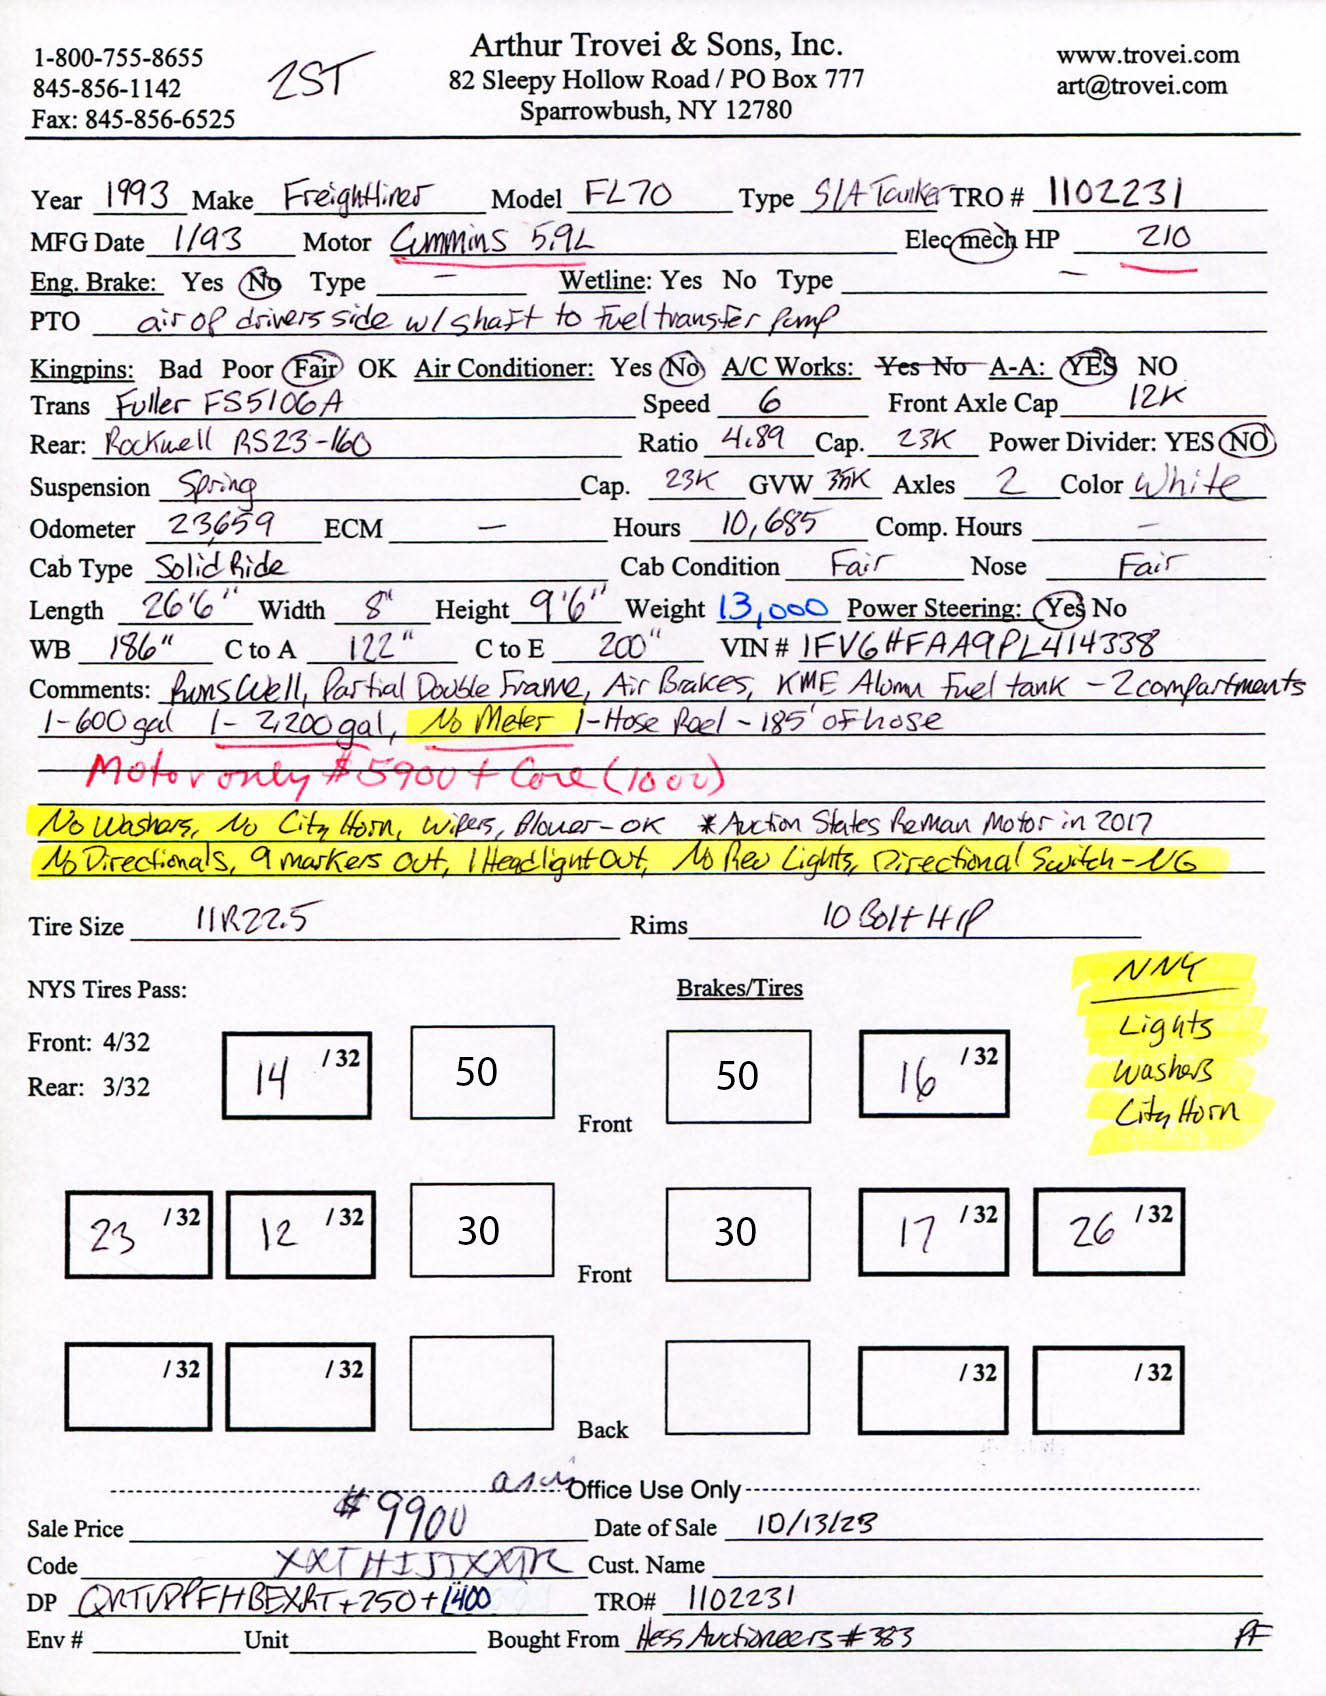 1-800-755-8655
845-856-1142
Fax: 845-856-6525
2ST
Arthur Trovei & Sons, Inc.
82 Sleepy Hollow Road / PO Box 777
Sparrowbush, NY 12780
www.trovei.com
art@trovei.com
Year 1993 Make Freightliner Model FL70 Type S/A Tanker TRO # 1102231
MFG Date 1/93 Motor Cummins 5.9L Elec mech HP 210
Eng. Brake: Yes No Type - Wetline: Yes No Type -
PTO air op drivers side w/shaft to fuel transfer pump
Kingpins: Bad Poor Fair OK Air Conditioner: Yes No A/C Works: Yes No A-A: YES NO
Trans Fuller FS5106A Speed 6 Front Axle Cap 12K
Rear: Rockwell RS23-160 Ratio 4.89 Cap. 23K Power Divider: YES NO
Suspension Spring Cap. 23K GVW 35K Axles 2 Color White
Odometer 23,659 ECM - Hours 10,685 Comp. Hours -
Cab Type Solid Ride Cab Condition Fair Nose Fair
Length 26'6" Width 8' Height 9'6" Weight 13,000 Power Steering: Yes No
WB 186" C to A 122" C to E 200" VIN # 1FV6HFAA9PL414338
Comments: Runs Well, Partial Double Frame, Air Brakes, KME Alumn Fuel tank - 2 compartments
1-600 gal 1-2,200 gal, No Meter 1-Hose Reel - 185' of hose
Motor only $5900 + Core (1000)
No Washers, No City Horn, Wipers, Blower-OK *Auction States Reman Motor in 2017
No Directionals, 9 markers out, 1 Headlight Out, No Rev Lights, Directional Switch-NG
Tire Size 11R22.5 Rims 10 Bolt HP
NYS Tires Pass:
Brakes/Tires
Front: 4/32
Rear: 3/32
NNY
Lights
Washers
City Horn
14 /32 50 Front 50 16 /32
23 /32 12 /32 30 Front 30 17 /32 26 /32
/32 /32 Back /32 /32
Office Use Only
Sale Price $9900 Date of Sale 10/13/23
Code Cust. Name
DP +250+1400 TRO# 1102231
Env # Unit Bought From Hess Auctioneers #383 PF